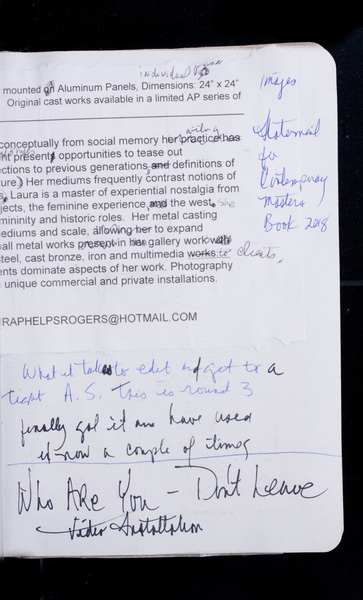 individual
mounted on Aluminum Panels, Dimensions: 24" x 24"
Original cast works available in a limited AP series of
Images
Statement
for
Contemporary
Masters
Book 2018
conceptually from social memory her practice has
nt present opportunities to tease out
ections to previous generations and definitions of
ure.) Her mediums frequently contrast notions of
s, Laura is a master of experiential nostalgia from
jects, the feminine experience, and the west. she
mininity and historic roles. Her metal casting
mediums and scale, allowing her to expand
all metal works present in her gallery work
steel, cast bronze, iron and multimedia works to clients.
ents dominate aspects of her work. Photography
unique commercial and private installations.
RAPHELPSROGERS@HOTMAIL.COM
What it takes to edit and get to a
tight A.S. This is round 3
finally got it and have used
it now a couple of times
Who Are You - Don't Leave
Video Installation